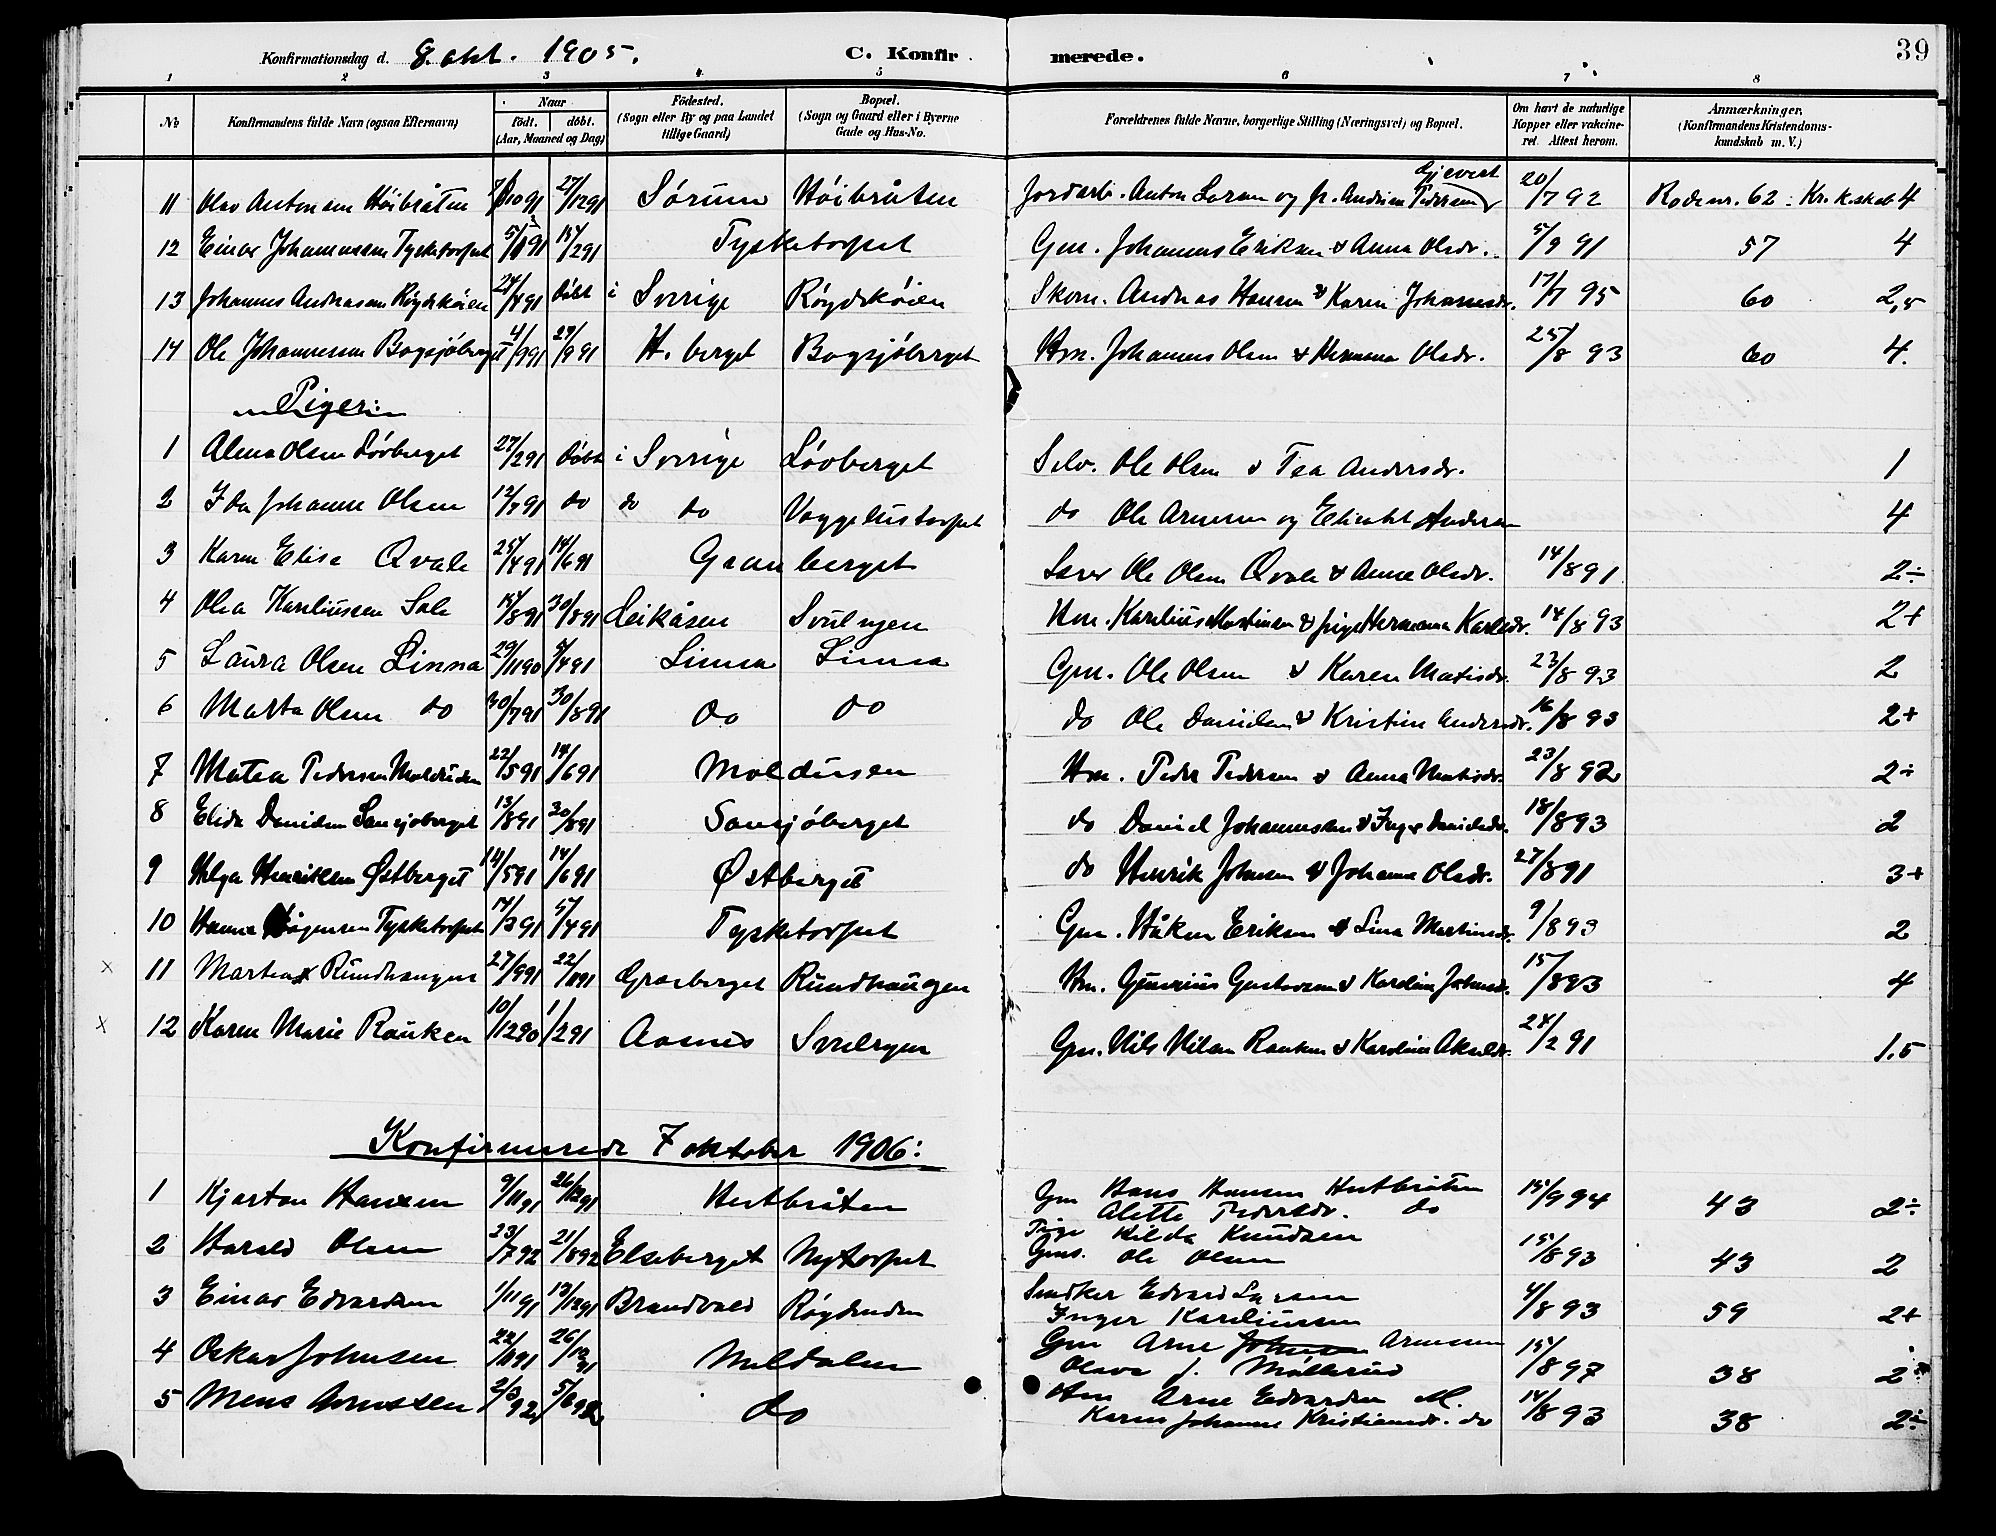 Konfirmationsdag d. 8. okt. 1905. C. Konfirmerede. 39
1 2 3 4 5 6 7 8
No Konfirmandens fulde Navn (ogsaa Efternavn) Naar Født. døbt. (Aar, Maaned og Dag) Fødested. (Sogn eller By og paa Landet tillige Gaard) Bopæl. (Sogn og Gaard eller i Byerne Gade og Hus-No. Forældrenes fulde Navne, borgerlige Stilling (Næringsvei) og Bopæl. Om havt de naturlige Kopper eller vakcineret. Attest herom. Anmærkninger, (Konfirmandens Kristendomskundskab m. V.)
11 Olav Antonsen Høibråten 27/12 91 Sørum Høibråten Jordarb. Anton Larsen og Andrine Pedersen 20/7 92 Rodenr. 62 : Kr.k.skab 4
12 Einar Johannessen Tysketorpet 15/2 91 Tysketorpet Gm. Johannes Eriksen & Anna Olsdr. 5/9 91 57 4
13 Johannes Andreassen Røgdskøien døbt i Sverige Røgdskøien Skom. Andreas Hansen & Karin Johannesdr. 17/7 95 60 2,5
14 Ole Johannessen Bogsjøberget 4/9 91 27/9 91 H. berget Bogsjøberget Hm. Johannes Olsen & Hermana Olsdr. 25/8 93 60 4.
Piger:
1 Alma Olsen Løvberget 27/2 91 døbt i Sverige Løvberget Selv. Ole Olsen & Tea Andersdr. 1
2 Ida Johanne Olsen 12/7 91 do do do do Ole Arnesen og Elisabet Andersen 4
3 Karen Elise Qvale 25/4 91 14/6 91 Granberget Ole Olsen Qvale & Anne Olsdr. 14/8 91 2÷
4 Olea Kareliussen Sole 15/8 91 30/8 91 Leikåsen Svulryen Hm. Karelius Martinsen & pige Hermana Karlsdr. 14/8 93 2+
5 Laura Olsen Linna 29/11 90 5/4 91 Linna Linna Gm. Ole Olsen & Karen Matisdr. 23/8 93 2
6 Marta Olsen do 30/7 91 30/8 91 do do do Ole Danielsen & Kristine Andersdr. 16/8 93 2+
7 Matea Pedersen Moldusen 22/5 91 14/6 91 Moldusen Hm. Peder Pedersen & Anna Matisdr. 23/8 92 2÷
8 Elida Danielsen Sansjøberget 13/8 91 30/8 91 Sansjøberget do Daniel Johannessen & Inger Danielsdr. 18/8 93 2
9 Helga Henriksen Østberget 14/5 91 14/6 91 Østberget do Henrik Johnsen & Johanne Olsdr. 27/8 91 3+
10 Hanna Tysketorpet 14/3 91 5/4 91 Tysketorpet Gm. Håken Eriksen & Lina Martinsdr. 9/8 93 2
x 11 Martea Rundhaugen 27/9 91 22/11 91 Grasberget Rundhaugen Hm. Gunerius Gustavsen & Karoline Johnsdr. 15/8 93 4
x 12 Karen Marie Rauken 10/12 90 1/2 91 Aasnes Svulryen Gm. Nils Nilsen Rauken & Karoline Akseldr. 24/2 91 1.5
Konfirmerede 7 oktober 1906:
1 Kjartan Hansen 9/11 91 26/12 91 Hestbråten Gm Hans Hansen Hestbråten 15/9 94 43 2÷
Alette Pedersdr. do
2 Harald Olsen 23/7 92 21/8 92 Elseberget Nytorpet Pige Hilda Knudsen 15/8 93 43 2
Gms. Ole Olsen
3 Einar Edvardsen 1/11 91 13/12 91 Brandvald Røgdenden Snedker Edvard Larsen 4/8 93 59 2+
Inger Kareliussen
4 Oskar Johnsen 22/11 91 26/12 91 Meldalen Gm Arne Johnsen Arnesen 15/8 97 38 2
Olava J. Møllerud
5 Mens Arnesen 2/3 92 5/6 92 do Hm Arne Edvardsen M. 14/8 93 38 2÷
Karen Johanne Kristiansdr. do